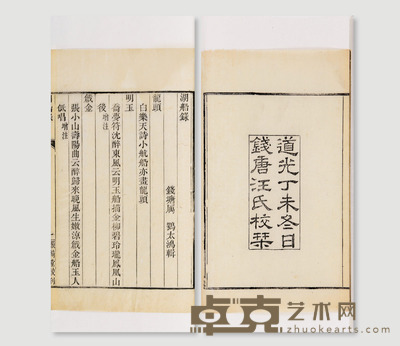 道光丁未冬日
錢唐汪氏校栞
湖船錄
錢塘厲鶚太鴻輯
龍頭
白樂天詩小航船亦畫龍頭
明玉
喬夢符沈醉東風云明玉船描金柳碧玲瓏鳳凰山
後 增注
戧金
張小山壽陽曲云醉歸來晚風生嫩涼戧金船玉人
低唱 增注
卓克艺术网
zhuokearts.com